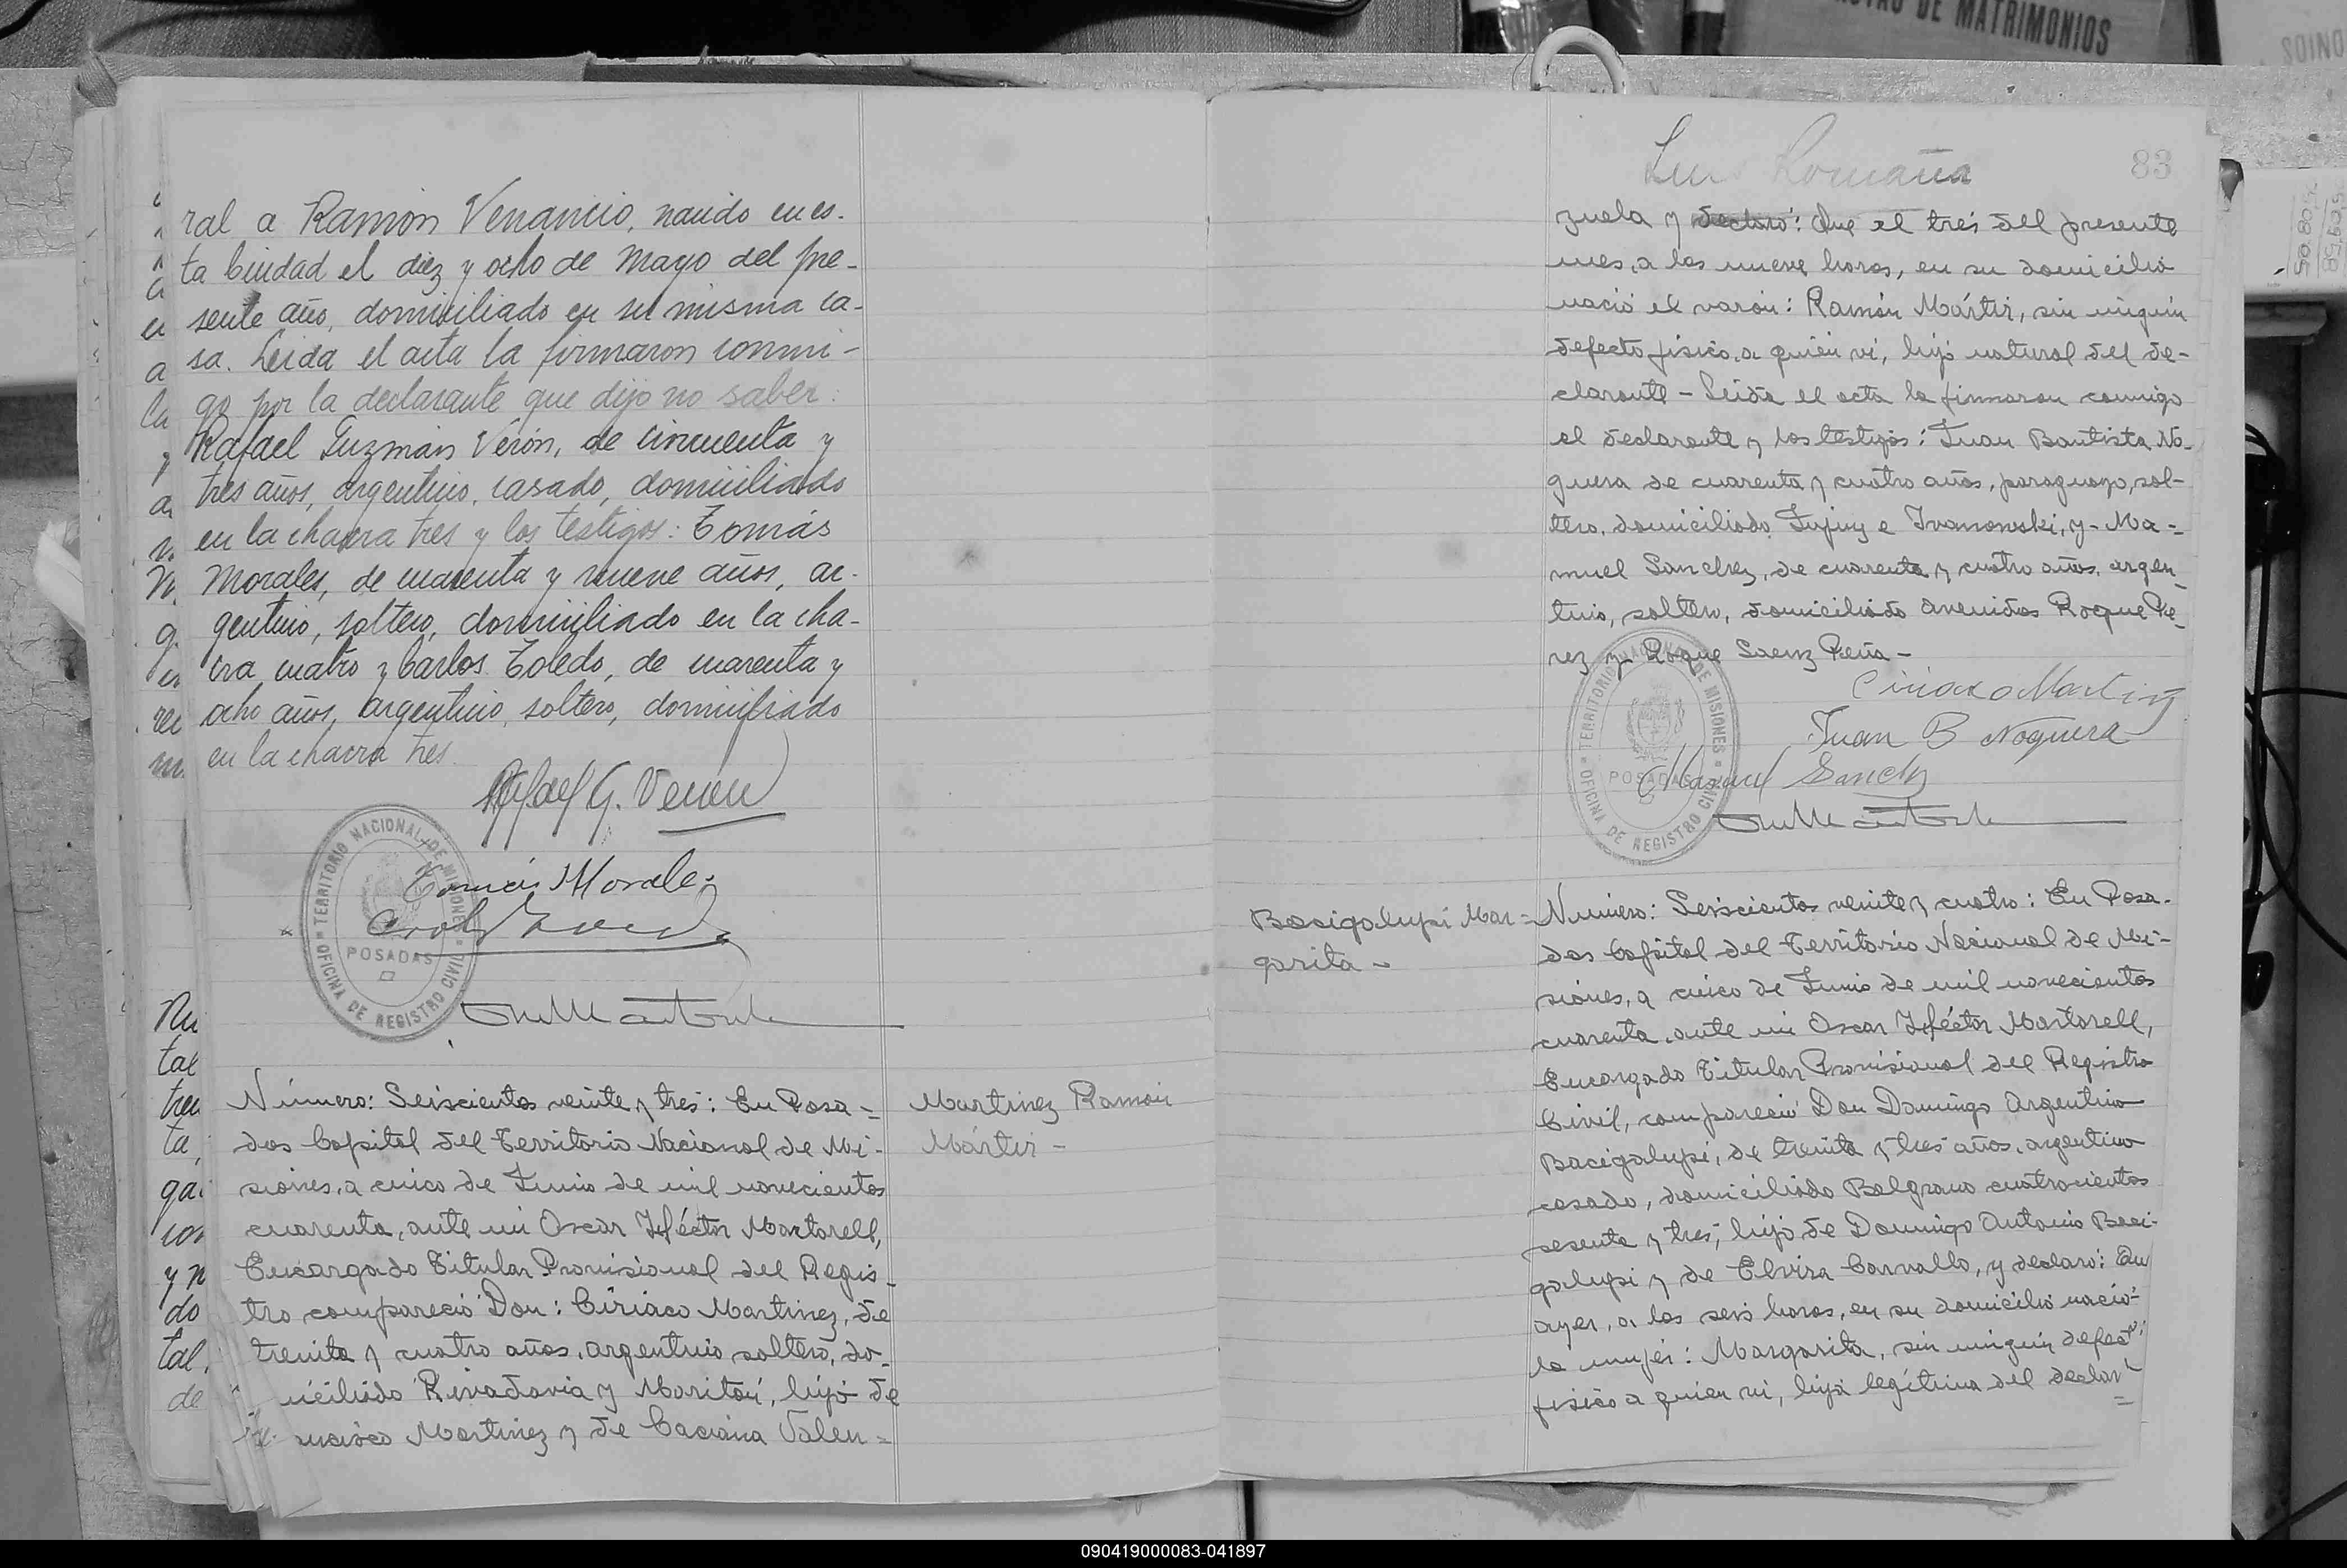 DE MATRIMONIOS
ral a Ramón Venancio, nacido en es-
ta Ciudad el diez y ocho de Mayo del pre-
sente año, domiciliado en su misma ca-
sa. Leida el acta la firmaron conmi-
go por la declarante que dijo no saber:
Rafael Guzmán Verón, de cincuenta y
tres años, argentino, casado, domiciliado
en la chacra tres y los testigos: Tomás
Morales, de cuarenta y nueve años, ar-
gentino, soltero, domiciliado en la cha-
cra cuatro y Carlos Toledo, de cuarenta y
ocho años, argentino, soltero, domiciliado
en la chacra tres.
Rafael G. Veron
Tomás Morales
TERRITORIO NACIONAL DE MISIONES
POSADAS
OFICINA DE REGISTRO CIVIL
Número: Seiscientos veinte y tres: En Posa-
das Capital del Territorio Nacional de Mi-
siones, a cinco de Junio de mil novecientos
cuarenta, ante mi Oscar Héctor Martorell,
Encargado Titular Provisional del Regis-
tro compareció Don: Ciriaco Martinez, de
treinta y cuatro años, argentino soltero, do-
miciliado Rivadavia y Maritaú, hijo de
Martinez y de Valen=
Martinez Ramón
Mártir -
Luis Romaña
83
zuela y declaró: Que el tres del presente
mes, a las nueve horas, en su domicilio
nació el varón: Ramón Mártir, sin ningún
defecto fisico, a quién ví, hijo natural del de-
clarante - Leida el acta la firmaron conmigo
el declarante y los testigos: Juan Bautista No-
guera de cuarenta y cuatro años, paraguayo, sol-
tero, domiciliado Jujuy e Ivanowski, y - Ma-
nuel Sanchez, de cuarenta y cuatro años, argen-
tino, soltero, domiciliado avenidas Roque Pe-
rez y Roque Saenz Peña -
Ciriaco Martinez
Juan B Noguera
Manuel Sanchz
TERRITORIO NACIONAL DE MISIONES
POSADAS
OFICINA DE REGISTRO CIVIL
Bacigalupi Mar=
garita -
Número: Seiscientos veinte y cuatro: En Posa-
das Capital del Territorio Nacional de Mi-
siones, a cinco de Junio de mil novecientos
cuarenta, ante mi Oscar Héctor Martorell,
Encargado Titular Provisional del Registro
Civil, compareció Don Domingo Argentino
Bacigalupi, de treinta y tres años, argentino
casado, domiciliado Belgrano cuatrocientos
sesenta y tres, hijo de Domingo Antonio Baci-
galupi y de Elvira Carvallo, y declaró: Que
ayer, a las seis horas, en su domicilio nació
la mujer: Margarita, sin ningún defecto
fisico a quien ví, hija legítima del declar=
090419000083-041897